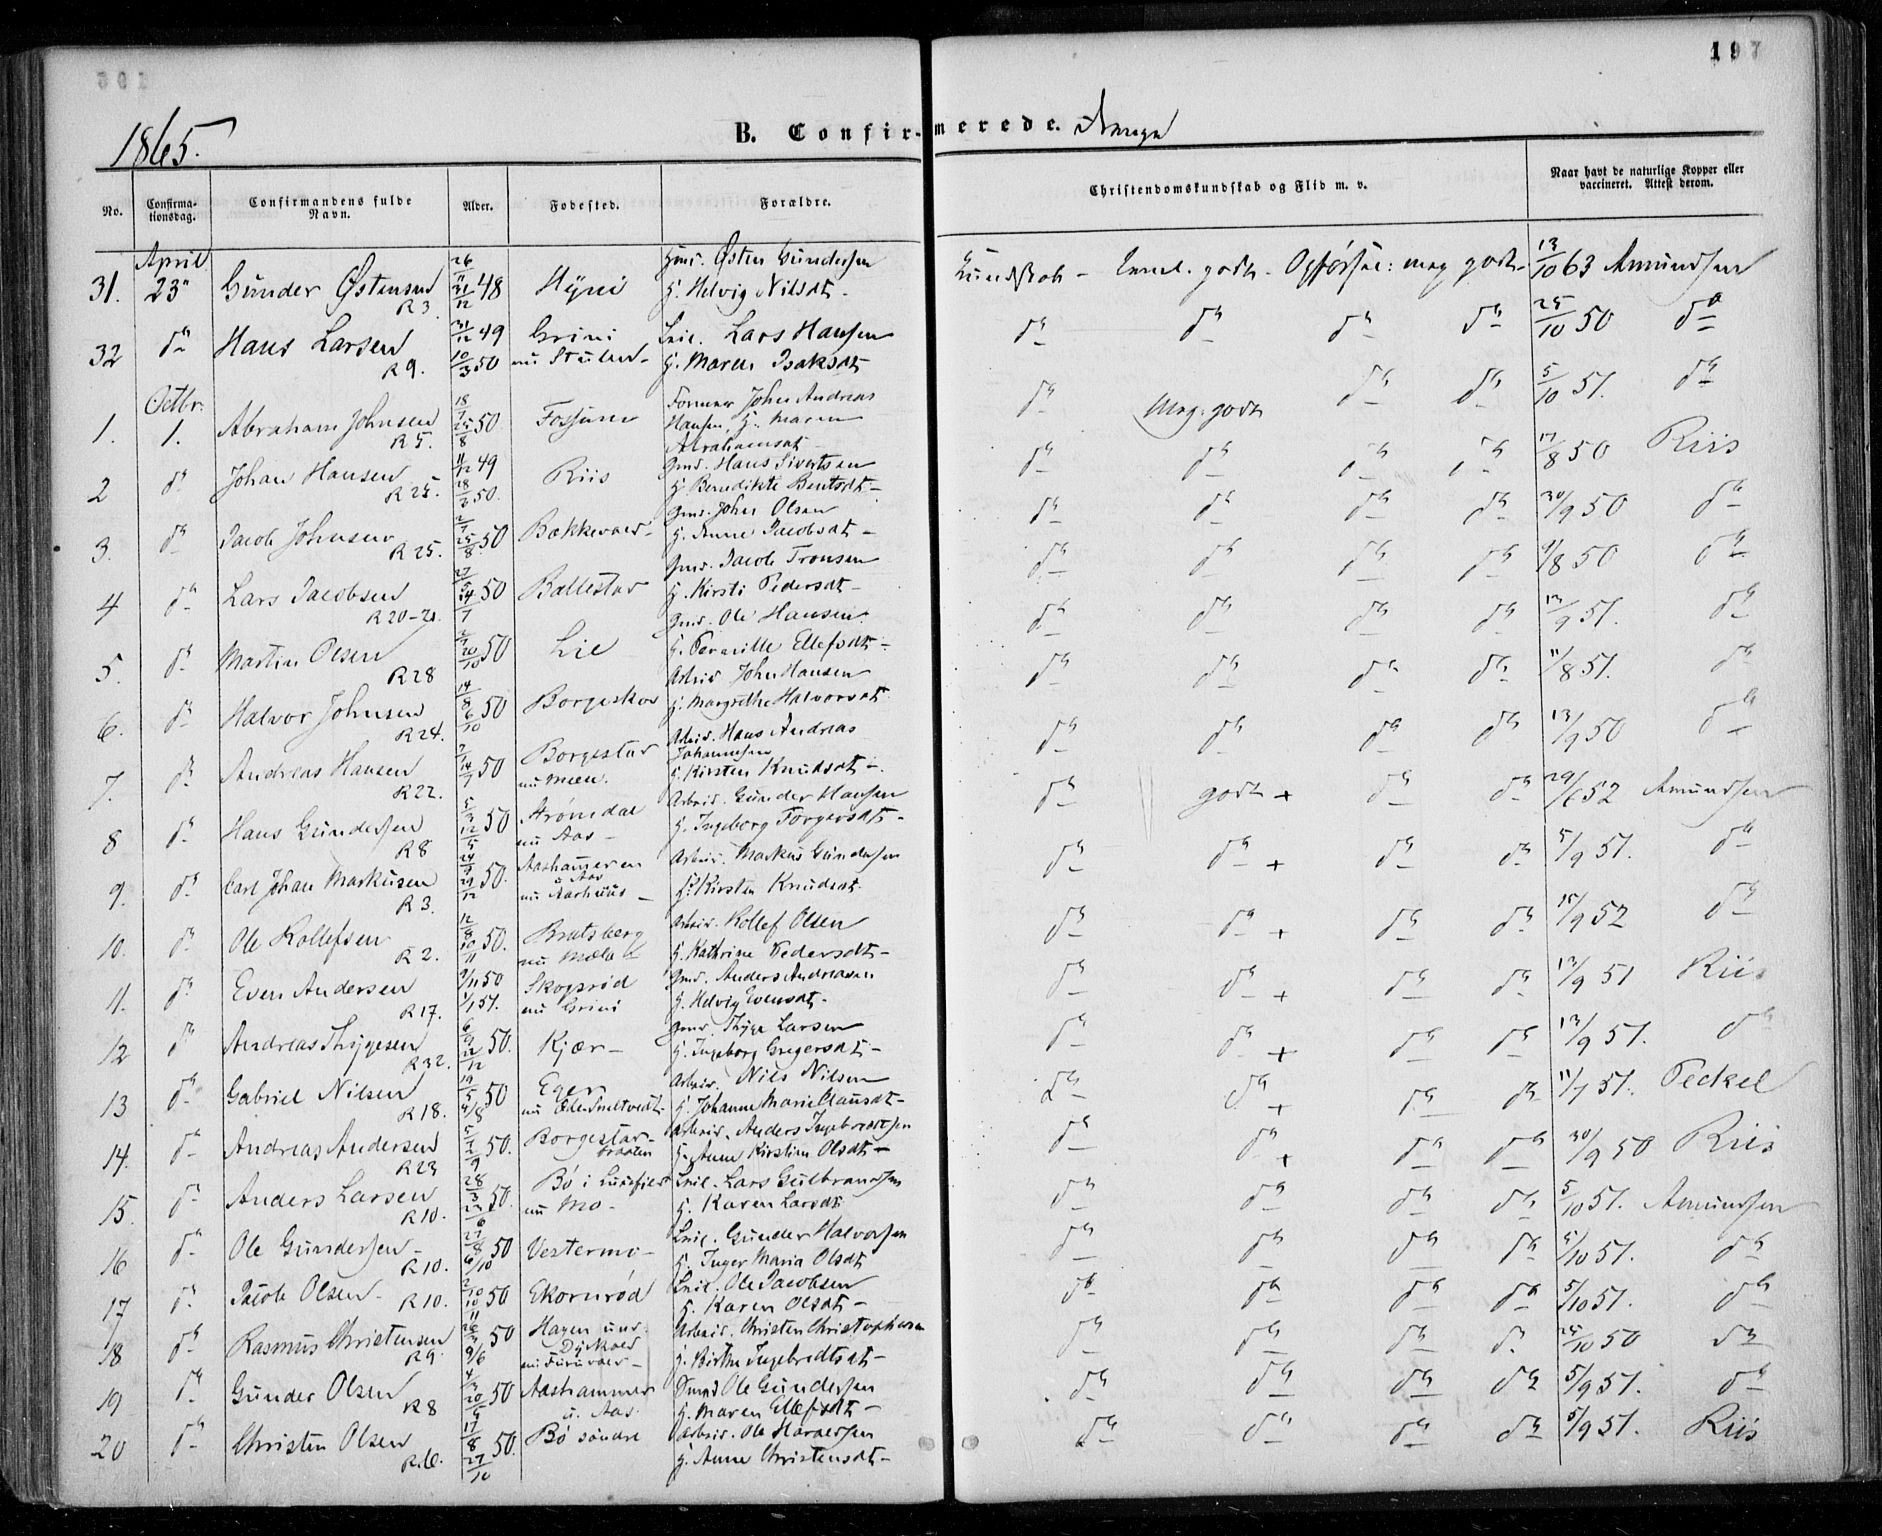 197
1865.
B. Confirmerede.
No. Confirmationsdag. Confirmandens fulde Navn. Alder. Fødested. Forældre. Christendomskundskab og Flid m. v. Naar havt de naturlige Kopper eller vaccineret. Attest derom.
April
31. 23 Gunder Østensen R 3. 26/11 48 21/12 Gmd. Østen Gundersen H. Helvig Nilsdt. Kundskab - godt. Opførsel: meg godt 13/10 63 Amundsen
32 do Hans Larsen R 9. 31/12 49 10/3 50 Grini nu Lars Hansen H. Maren Isaksdt do do do do 25/10 50 do
Octbr.
1. 1. Abraham Johnsen R 5. 18/7 50 25/8 Fossum Former John Andreas Hansen, H. Maren Abrahamsdt do Meg. godt do do 5/10 51. do
2 do Johan Hansen R 25. 11/12 49 18/2 50. Riis Gmd. Hans Sivertsen H. Benedikte Bentsdt do do do do 17/8 50 Riis
3. do Jacob Johnsen R 25. 2/7 50 25/8 Bakkevold Gmd. John Olsen H. Anne Jacobsdt do do do do 30/9 50 do
4 do Lars Jacobsen R 20-21. 27/5 50 14/7 Ballestad Gmd. Jacob Tronsen H. Kirsti Pedersdt do do do do 9/8 50 do
5. do Martin Olsen R 28 2/9 50 20/10 Lie Gmd. Ole Hansen H. Pernille Ellefsdt do do do do 13/9 51. do
6. do Halvor Johnsen R 24. 14/8 50 6/10 Borgeskov Arbeid John Hansen H. Margrethe Halvorsdt do do do do 11/8 51. do
7. do Andreas Hansen R 22. 7/ 50 14/7 Borgestad nu Mæen. Arbeid. Hans Andreas Johannesen H. Kirsten Knudsdt do do do do 13/9 50 do
8 do Hans Gundersen R 8 5/3 50 12/5 Strømdal nu Aas Arbeid. Gunder Hansen H. Ingeborg Torgersdt do godt + do do 29/6 52 Amundsen
9. do Carl Johan Markusen R 3. 24/9 50. 29/12 Aashammeren u. Aas nu Aarhuus Arbeid. Markus Gundersen H. Kirsten Knudsdt do do + do do 5/9 51. do
10. do Ole Rollefsen R 2. 12/8 50. 10/11 Bratsberg nu Mæla Arbeid. Rollef Olsen H. Kathrine Pedersdt do do + do do 15/9 52 do
11. do Even Andersen R 17. 9/11 50 1/1 51. Skogsrød nu Grini Gmd. Anders Andreasen H. Helvig Evensdt do do + do do 13/9 51 Riis
12 do Andreas Thygesen R 32. 6/9 50. 22/12 Kjær Gmd. Thyge Larsen H. Ingeborg Gregersdt do do + do do 13/9 51. do
13 do Gabriel Nilsen R 18. 19/5 50 4/8 Eger nu Arbeid. Nils Nilsen H. Johanne Marie Clausdt do do + do do 11/7 51. Peckel
14. do Andreas Andersen R 23 5/7 50. 2/9 Borgestad- braaten Arbeid. Anders Ingebretsen H. Anne Kirstine Olsdt do do + do do 30/9 50 Riis
15. do Anders Larsen R 10. 28/3 50. 23/6 Bø i Lundfjeld nu Mo Lars Gulbrandsen H. Karen Larsdt do do do do 5/10 51. Amundsen
16 do Ole Gundersen R 10. 27/8 50 6/10 Vestermo Gunder Halvorsen H. Inger Maria Olsdt do do do do 5/10 51. do
17 do Jacob Olsen R 10. 2/10 50 10/11 Ekornrød Ole Jacobsen H. Karen Olsdt do do do do 5/10 51. do
18 do Rasmus Christensen R 9. 26/4 50 9/6 Hagen und. nu Furuvald Arbeid. Christen Christophersen H. Birthe Ingebretsdt do do do do 25/10 50 do
19 do Gunder Olsen R 8 4/3 50 20/5 Aashammer u. Aas Ole Gundersen H. Maren Ellefsdt do do do do 5/9 51. do
20 do Christen Olsen R. 6. 17/8 50. 27/10 Bø søndre Arbeid. Ole Halvorsen H. Anne Christensdt do do do do 5/9 51. Riis